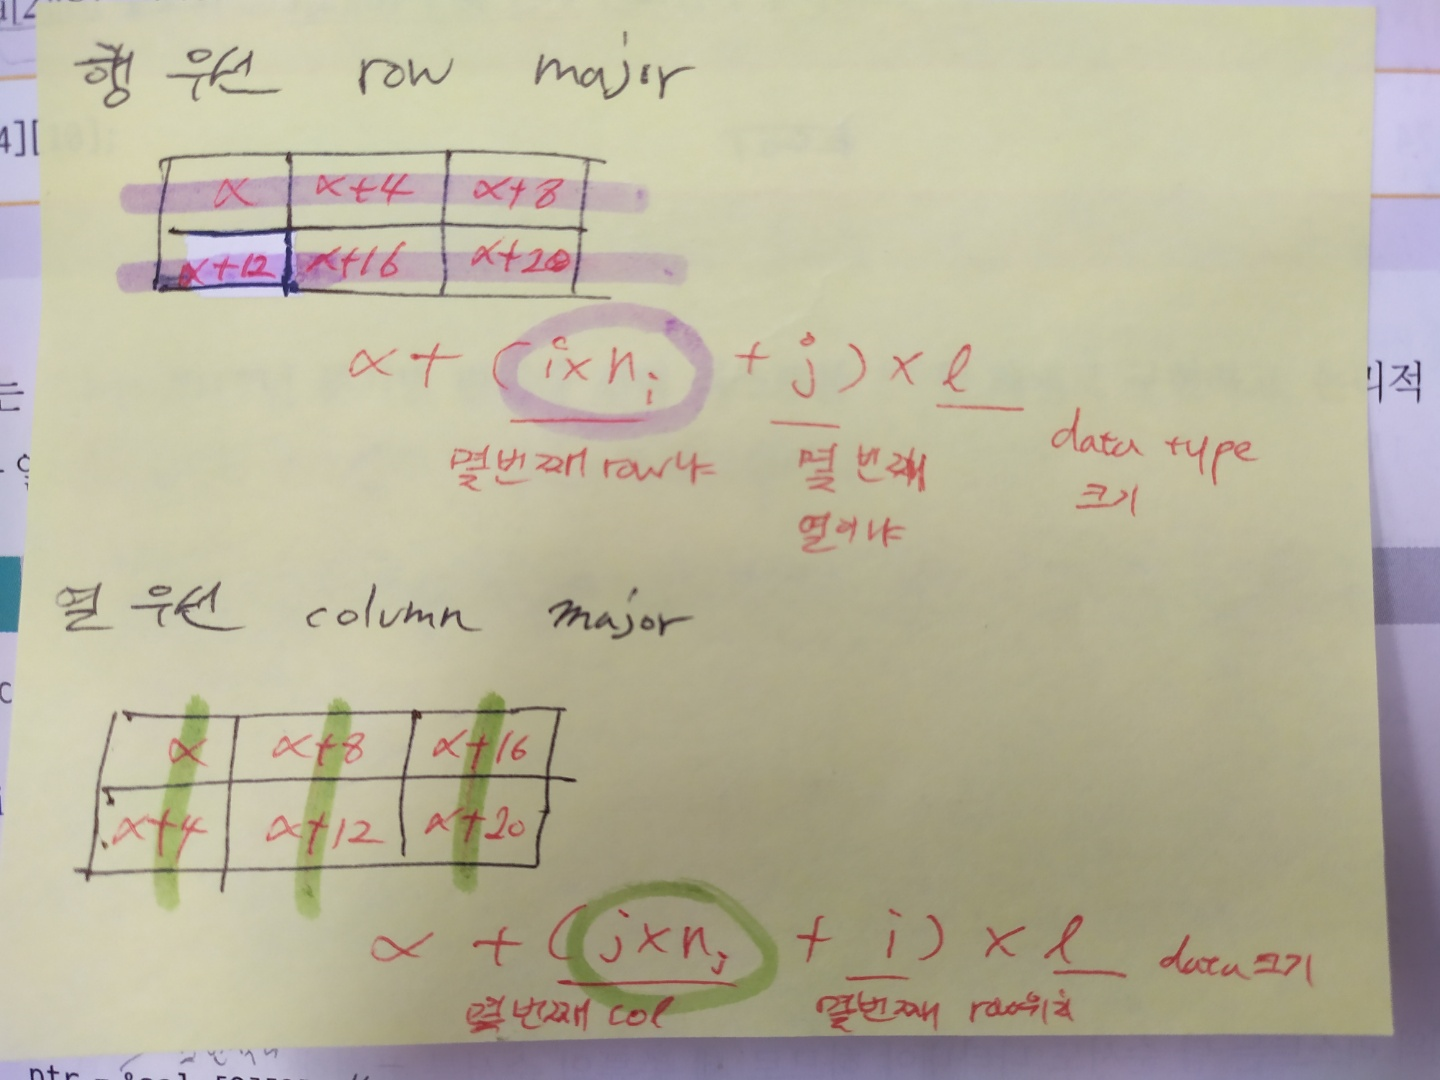 행 우선 row major
4][10];
α α+4 α+8
α+12 α+16 α+20
α + (i×nᵢ + j) × l
는
리적
몇번째 row냐 몇 번째 data type
열이냐 크기
열 우선 column major
α α+8 α+16
α+4 α+12 α+20
α + (j×nⱼ + i) × l data크기
몇번째 col 몇번째 row위치
ptr